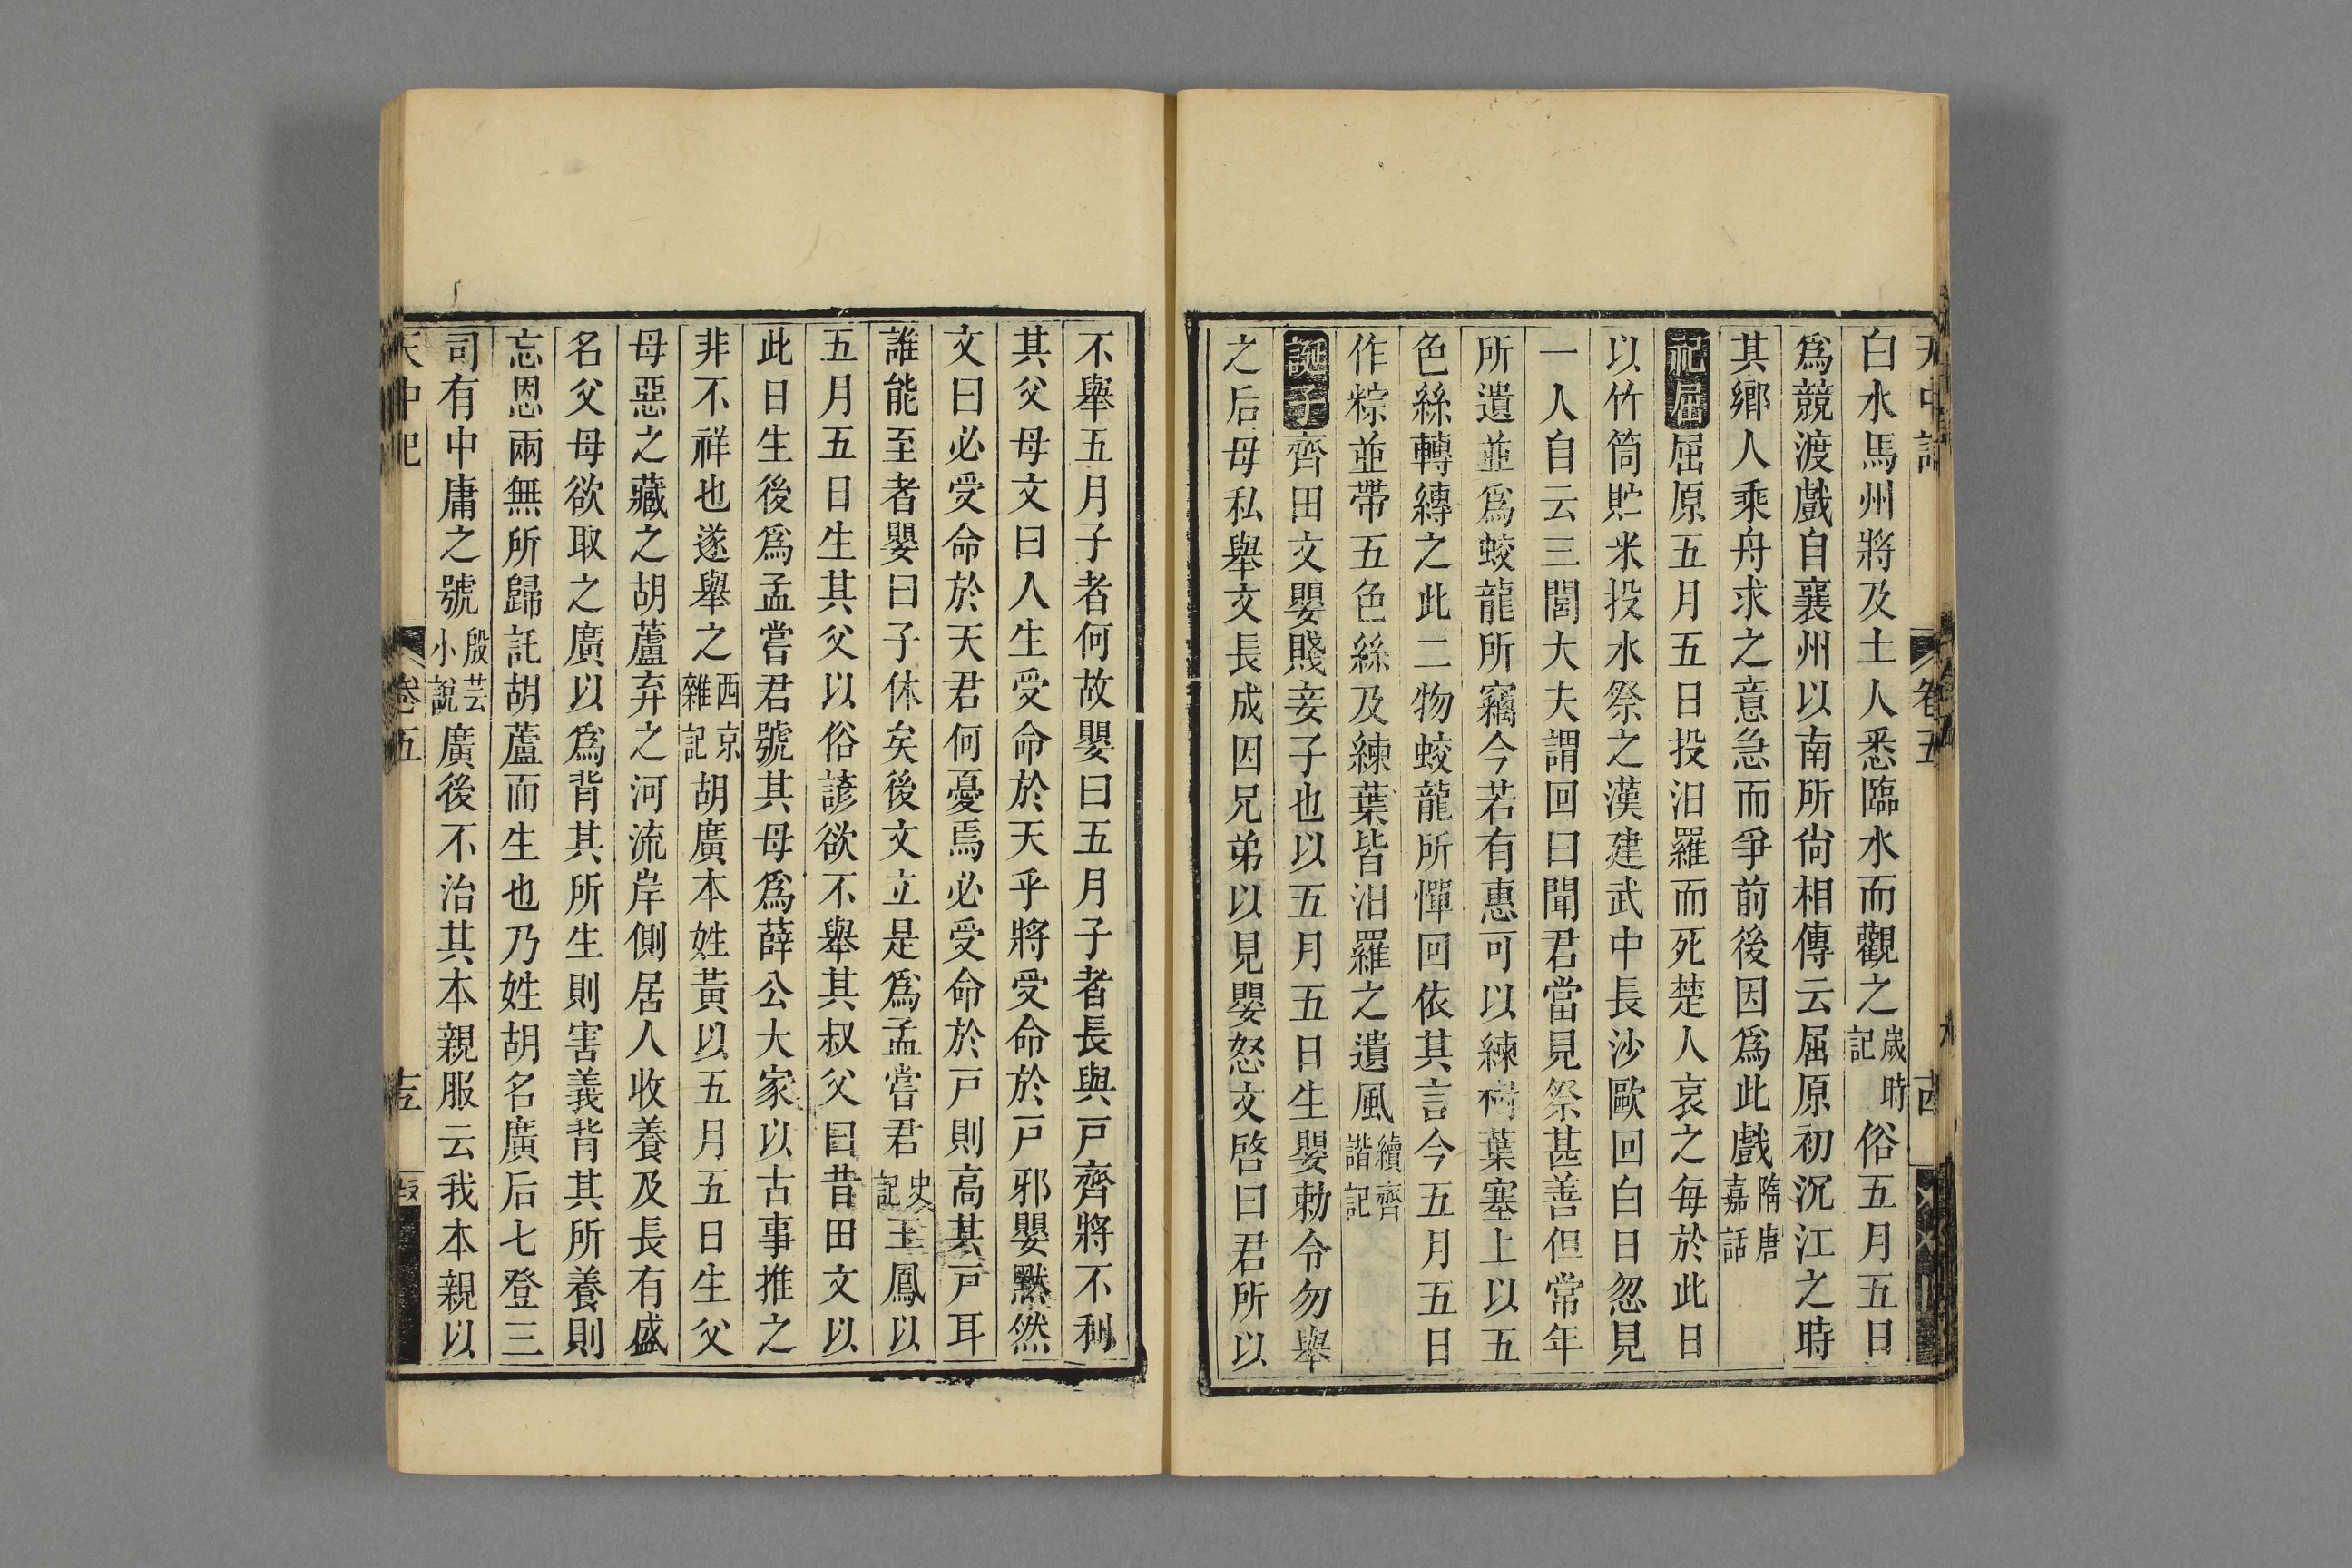 天中記 卷五
白水馬州將及土人悉臨水而觀之歲時記俗五月五日
爲競渡戲自襄州以南所尙相傳云屈原初沉江之時
其鄉人乘舟求之意急而爭前後因爲此戲隋唐嘉話
祀屈屈原五月五日投汨羅而死楚人哀之每於此日
以竹筒貯米投水祭之漢建武中長沙歐回白日忽見
一人自云三閭大夫謂回曰聞君當見祭甚善但常年
所遺並爲蛟龍所竊今若有惠可以練樹葉塞上以五
色絲轉縛之此二物蛟龍所憚回依其言今五月五日
作粽並帶五色絲及練葉皆汨羅之遺風續齊諧記
誕子齊田文嬰賤妾子也以五月五日生嬰勅令勿舉
之后母私舉文長成因兄弟以見嬰怒文啓曰君所以
不舉五月子者何故嬰曰五月子者長與戸齊將不利
其父母文曰人生受命於天乎將受命於戸邪嬰默然
文曰必受命於天君何憂焉必受命於戸則高其戸耳
誰能至者嬰曰子休矣後文立是爲孟嘗君史記王鳳以
五月五日生其父以俗諺欲不舉其叔父曰昔田文以
此日生後爲孟嘗君號其母爲薛公大家以古事推之
非不祥也遂舉之西京雜記胡廣本姓黃以五月五日生父
母惡之藏之胡蘆弃之河流岸側居人收養及長有盛
名父母欲取之廣以爲背其所生則害義背其所養則
忘恩兩無所歸託胡蘆而生也乃姓胡名廣后七登三
司有中庸之號殷芸小說廣後不治其本親服云我本親以
天中記 卷五